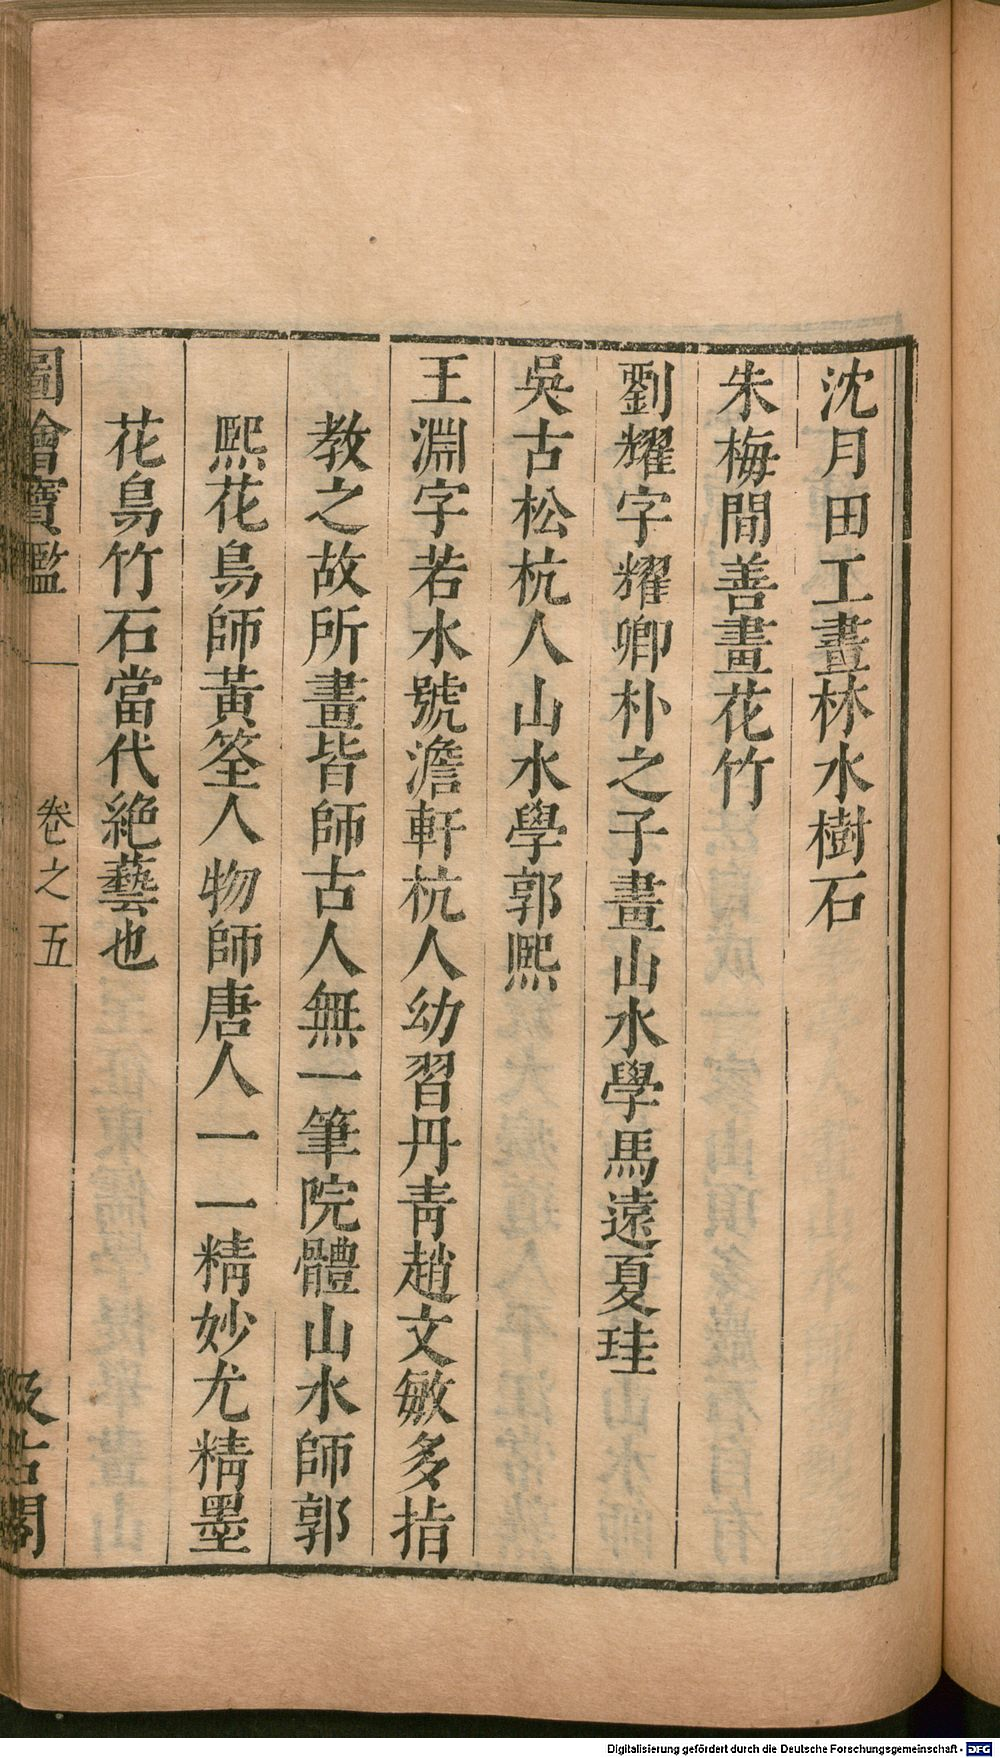 沈月田工畫林水樹石
朱梅間善畫花竹
劉耀字耀卿朴之子畫山水學馬遠夏珪
吳古松杭人山水學郭熈
王淵字若水號澹軒杭人幼習丹青趙文敏多指
教之故所畫皆師古人無一筆院體山水師郭
熈花鳥師黃筌人物師唐人一一精妙尤精墨
花鳥竹石當代絶藝也
圖繪寶鑑 卷之五 汲古閣
Digitalisierung gefördert durch die Deutsche Forschungsgemeinschaft - DFG